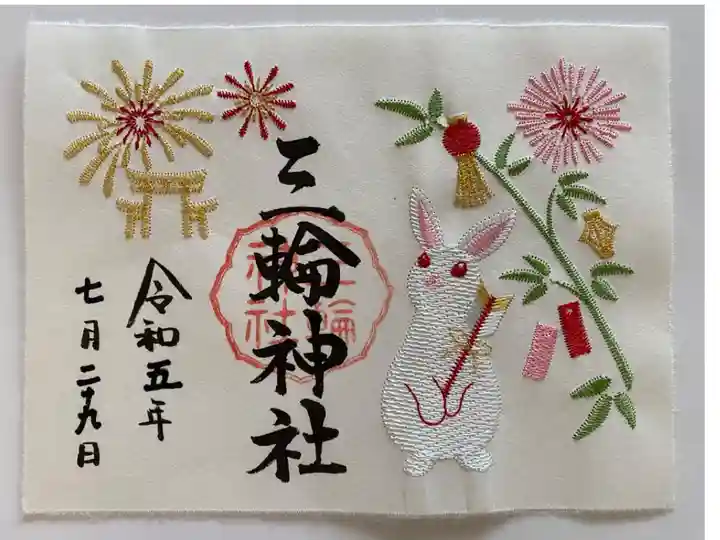 三輪神社
三輪
神社
令和五年
七月二十九日